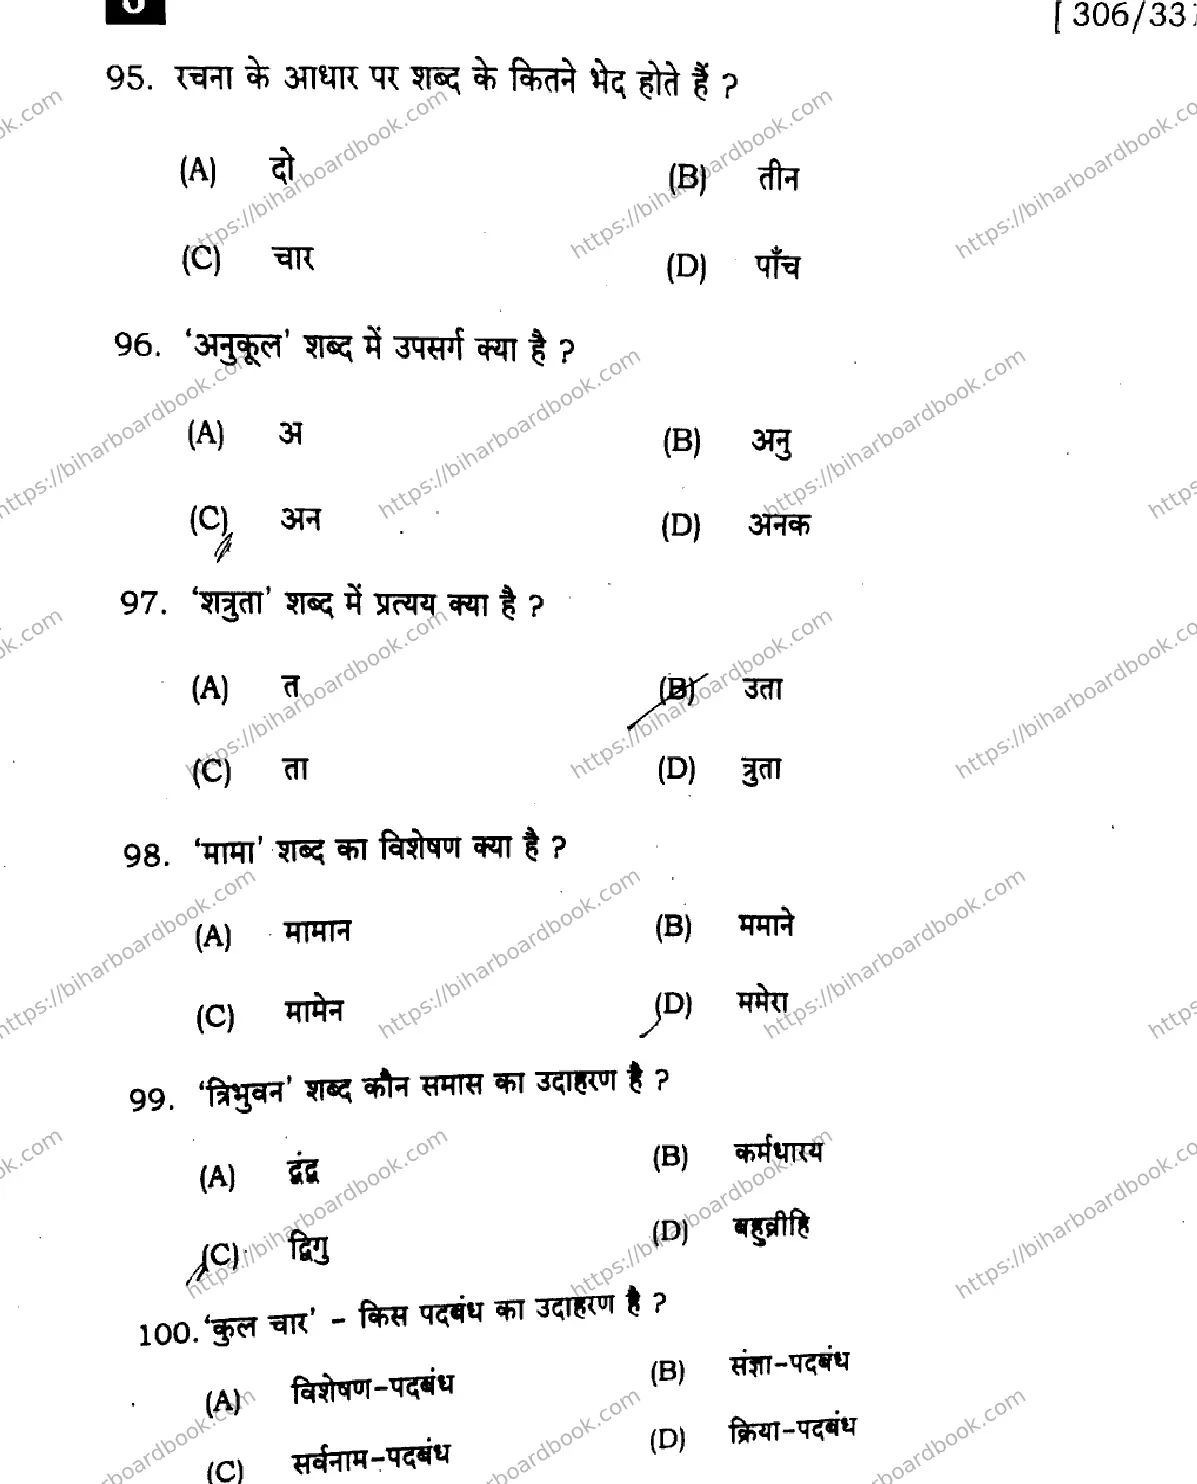 [ 306/33
95. रचना के आधार पर शब्द के कितने भेद होते हैं ?
(A) दो (B) तीन
(C) चार (D) पाँच
96. 'अनुकूल' शब्द में उपसर्ग क्या है ?
(A) अ (B) अनु
(C) अन (D) अनक
97. 'शत्रुता' शब्द में प्रत्यय क्या है ?
(A) त (B) उता
(C) ता (D) त्रुता
98. 'मामा' शब्द का विशेषण क्या है ?
(A) मामान (B) ममाने
(C) मामेन (D) ममेरा
99. 'त्रिभुवन' शब्द कौन समास का उदाहरण है ?
(A) द्वंद्व (B) कर्मधारय
(C) द्विगु (D) बहुव्रीहि
100. 'कुल चार' – किस पदबंध का उदाहरण है ?
(A) विशेषण-पदबंध (B) संज्ञा-पदबंध
(C) सर्वनाम-पदबंध (D) क्रिया-पदबंध
https://biharboardbook.com